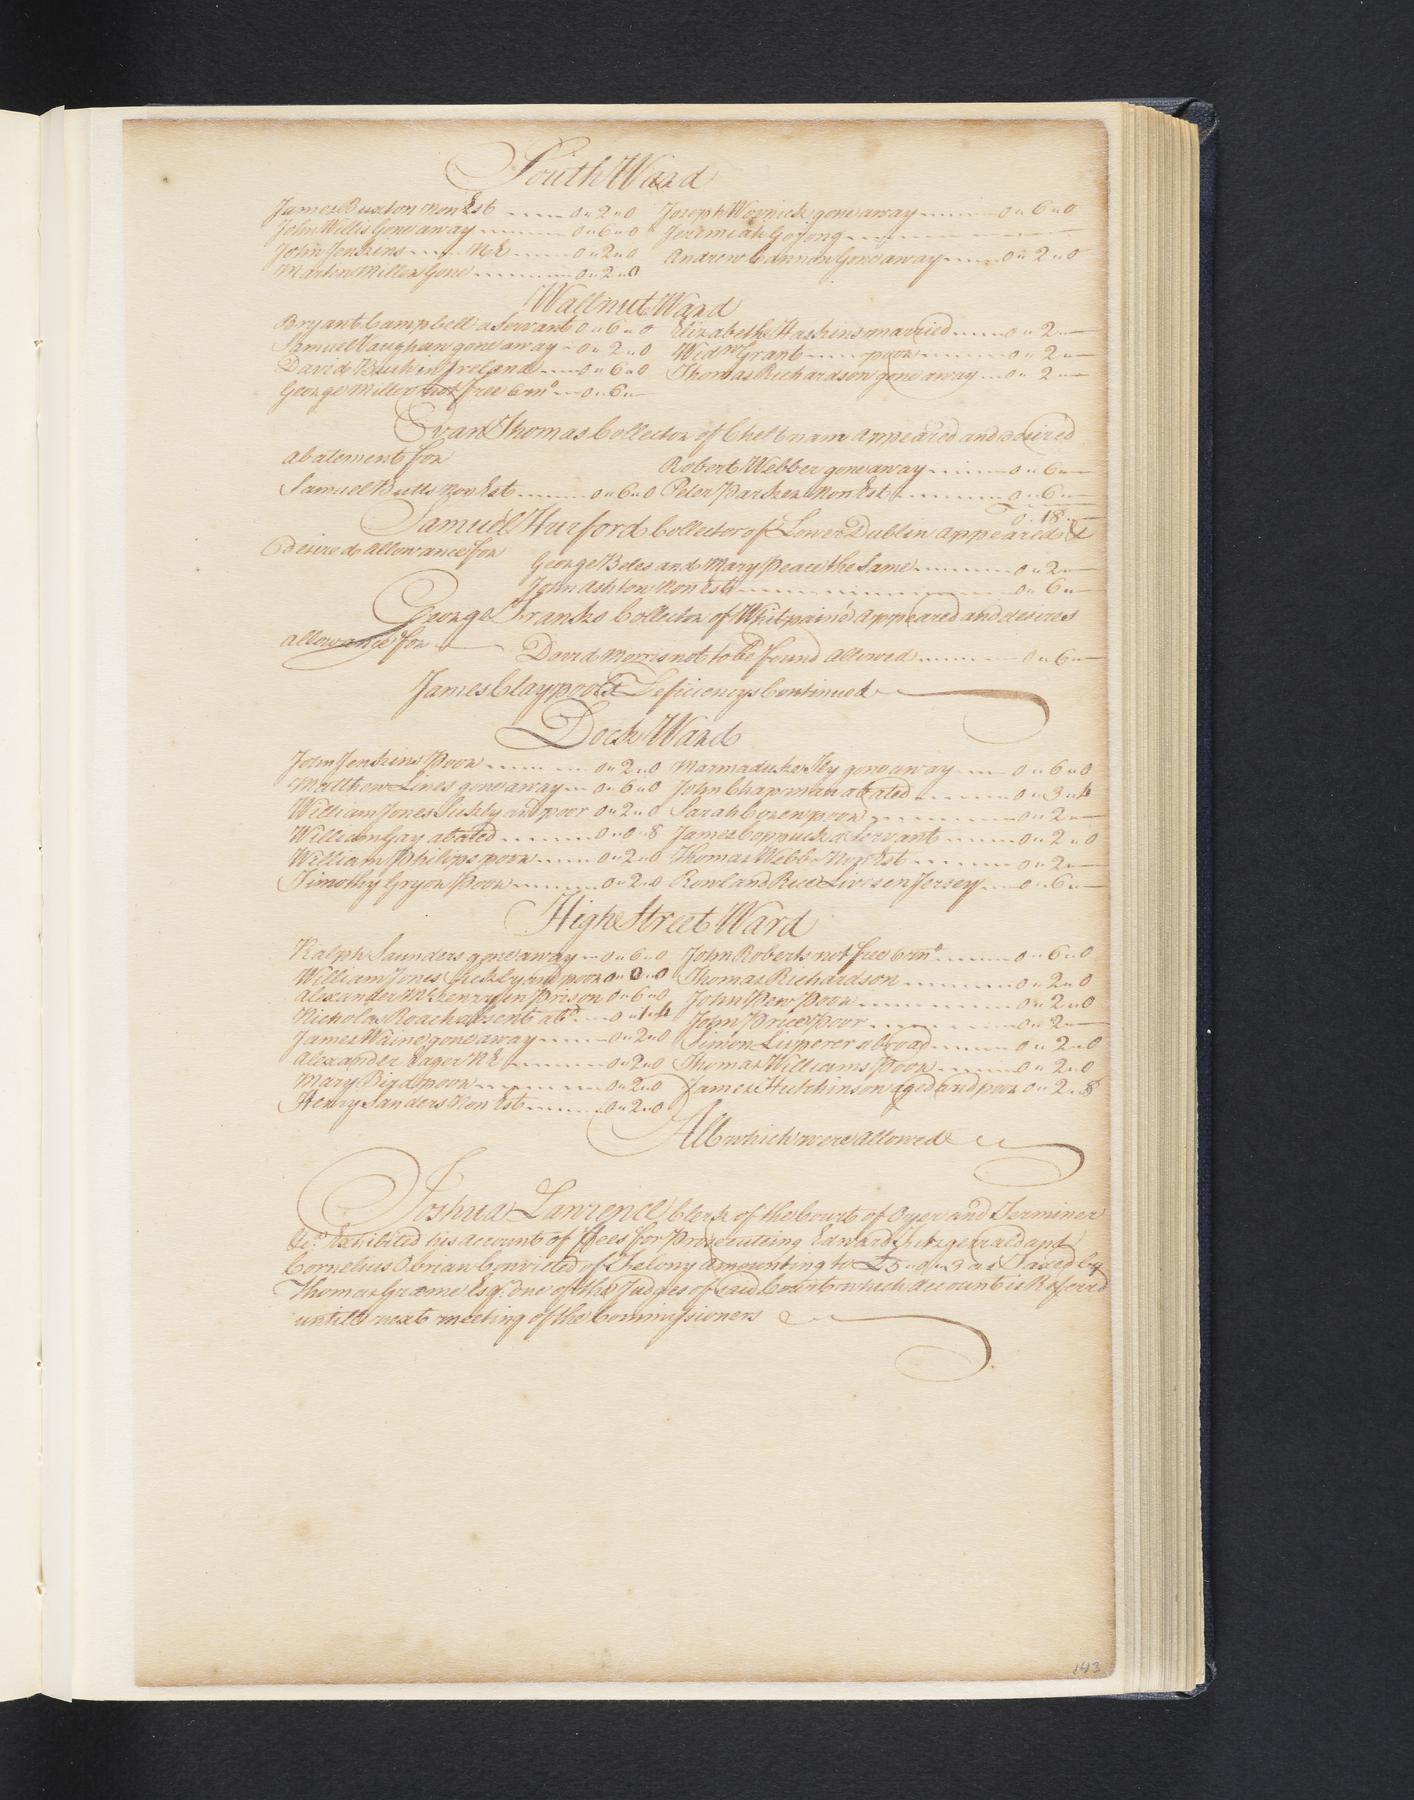 South Ward
James Buxton Non Est 0 " 2 " 0 Joseph Warnick gone away 0 " 6 " 0
John Willis Gone away 0 " 6 " 0 Jeremiah
John Jenkins N E 0 " 2 " 0 Andrew Cannon Gone away 0 " 2 " 0
Martin Miller Gone 0 " 2 " 0
Wallnut Ward
Bryant Campbell a Servant 0 " 6 " 0 Elizabeth Haskins married 0 " 2 " —
Samuel Vaughan gone away 0 " 2 " 0 Widw Grant poor 0 " 2 " —
David Bush in Ireland 0 " 6 " 0 Thomas Richardson gone away 0 " 2 " —
George Miller not free 6 mo 0 " 6 " —
Evan Thomas Collector of Cheltnam appeared and desired
abatement for
Robert Webber gone away 0 " 6 " —
Samuel Butts Non Est 0 " 6 " 0 Peter Parker Non Est 0 " 6 " —
0 . 18 . —
Samuel Hurford Collector of Lower Dublin appeared &
desired allowance for
George Betes and Mary Peace the Same 0 " 2 " —
John Ashton Non Est 0 " 6 " —
George Franks Collector of Whitpain's appeared and desires
allowance for
David Morris not to be found allowed 0 " 6 " —
James Claypoole's Deficiencys Continued
Dock Ward
John Jenkins Poor 0 " 2 " 0 Marmaduke Ivy gone away 0 " 6 " 0
Matthew Lines gone away 0 " 6 " 0 John Chapman abated 0 " 3 " 4
William Jones Sickly and poor 0 " 2 " 0 Sarah Cozen poor 0 " 2 " —
William Gay abated 0 " 0 " 8 James Coppuck a Servant 0 " 2 " 0
William Philips poor 0 " 2 " 0 Thomas Webb Non Est 0 " 2 " —
Timothy Gryon Poor 0 " 2 " 0 Rowland Rice Lives in Jersey 0 " 6 " —
High Street Ward
Ralph Saunders gone away 0 " 6 " 0 John Roberts not free 6 mo 0 " 6 " 0
William Jones Sickly and poor 0 " 0 " 0 Thomas Richardson 0 " 2 " 0
Alexander McKenry in Prison 0 " 6 " 0 John Pew Poor 0 " 2 " 0
Nicholas Roach absent abd 0 " 1 " 4 John Price Poor 0 " 2 " —
James Waine gone away 0 " 2 " 0 Simon Lisperer abroad 0 " 2 " 0
Alexander Eager N E 0 " 2 " 0 Thomas Williams Poor 0 " 2 " 0
Mary Bird poor 0 " 2 " 0 James Hutchinson aged and poor 0 " 2 " 8
Henry Sanders Non Est 0 " 2 " 0
All which were allowed
Joshua Lawrence Clerk of the Court of Oyer and Terminer
&c. Exhibited his account of Fees for Prosecuteing Edward Fitzgerrald and
Cornelius Obrian Convicted of Felony amounting to £5 " 0 " 3 as Taxed by
Thomas Græme Esqr. one of the Judges of said Court which account is Referred
untill next meeting of the Commissioners
143